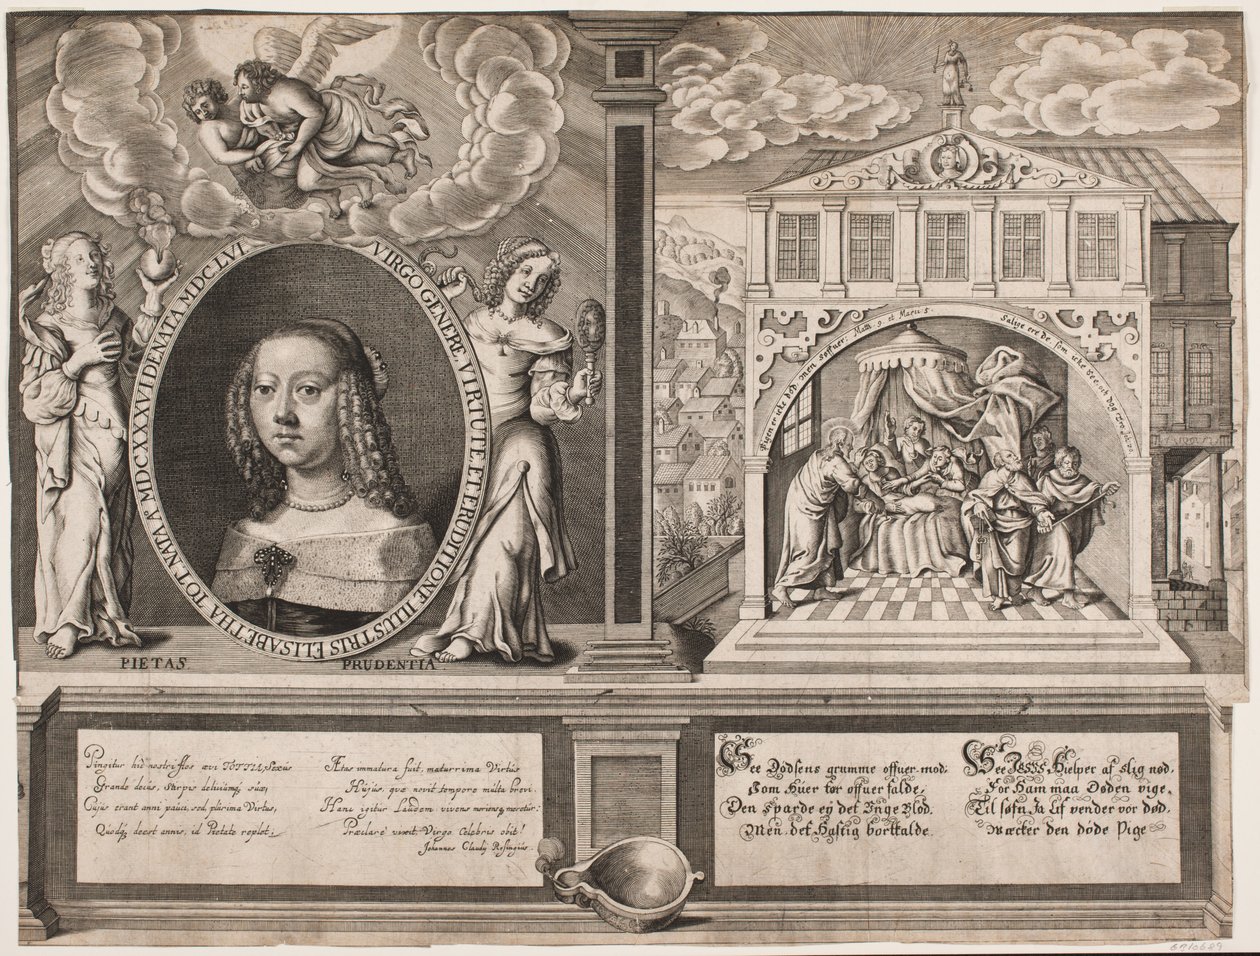 VIRGO GENERE, VIRTUTE, ET ERUDITIONE ILLUSTRIS ELISABETHA TOT. NATA Aº MDCXXXVI DENATA MDCLVI
PIETAS
PRUDENTIA
Pigen er icke død men soffuer. Matth. 9. et Marci 5.
Salige ere de, som icke see, oc dog troe. Joh. 20.
Pingitur hic nostri flos ævi TOTTIA, Sexus
Grande decus, stirpis delicium, suæ;
Cujus erant anni pauci, sed plurima Virtus,
Quodq; decet annis, id Pietate replet;
Ætas immatura fuit, maturrima Virtus
Hujus, quæ novit tempore multa brevi.
Hanc igitur Laudem vivens moriensq; meretur:
Præclarè vixit Virgo Celebris obit!
Johannes Claudij Rosingius.
See Dödsens grumme offuer mod,
Som huer tør offuer falde,
Den sparde ey det Unge Blod,
Men det Hastig bortkalde.
See JESUS, Hielper af slig nød,
For Ham maa Døden vige,
Til søfn, Ja Lif vender vor død,
Wæcker den døde Pige